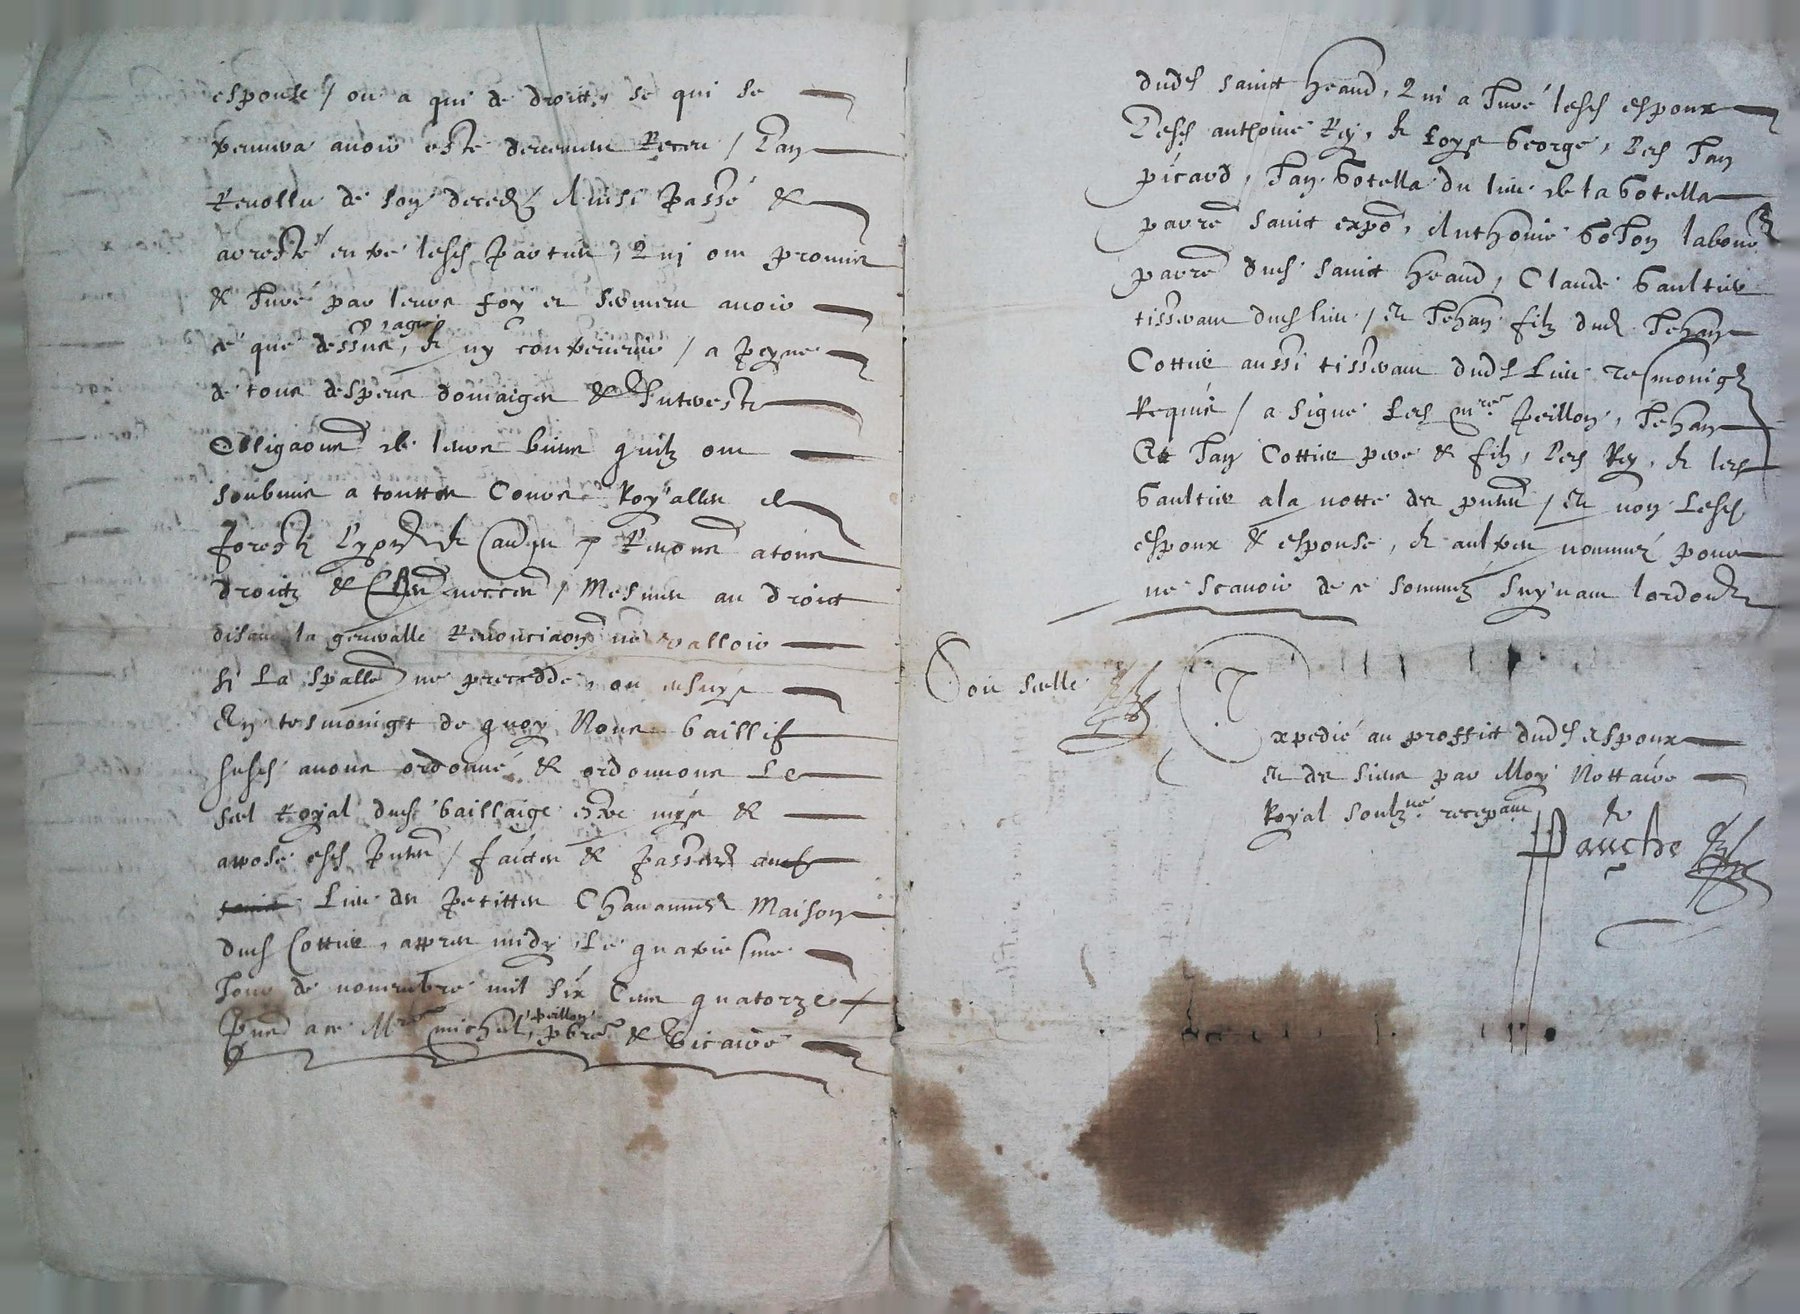 espouse / ou a qui de droict, se qui se
treuvera avoir esté dernierem receu / L'an
Revollu de son deced Ainsi passé &
arresté entre lesd parties, Qui ont promis
& Juré par leurs foy et serment avoir
ce que dessus, agreable & ny contrevenir / a peyne
de tous despens domaiges & Intherestz
Obligaons de leurs biens quilz ont
soubmis a touttes Cours Royalles de
forestz Lyon & autres & Renons a tous
droictz & mesmes au droict
disant la generalle Renonciaon ne valloir
si La spalle ne precedde, ou ensuyt
En tesmoingt de quoy Nous baillif
susd avons ordonné & ordonnons Le
seel royal dud bailliaige estre mys &
apposé esd pntes / faictes & passees aud
Lieu des petittes Chavannes Maison
dud Cottier, appres midy, Le quatriesme
Jour de novembre mil six Cens quatorze
Pnt a ce Mre michel peillon, pbre & vicaire
dudt sainct heand, Qui a Juré lesd espoux
Lesd anthoine Rey, & Loys George, Led Jan
picard, Jan Gotella du lieu de la Gotella
parre sainct expo, Anthoine Goton laboureur
parre dud sainct heand, Claude Gaultier
tisserant dud lieu / et Jehan filz dud Jehan
Cottier aussi tisserant dudt Lieu tesmoingz
Requis / a signé Led mre peillon, Jehan
Et Jan Cottier pere & filz, Led Rey, & led
Gaultier a la notte des pntes / et non Lesd
espoux & espouse, & aultres nommez pour
ne scavoir de ce sommez suyvant lordonnce
Soit seellé
Expedié au proffict dudt espoux
et des siens par Moy Nottaire
Royal soubzné recepvant
Pauche